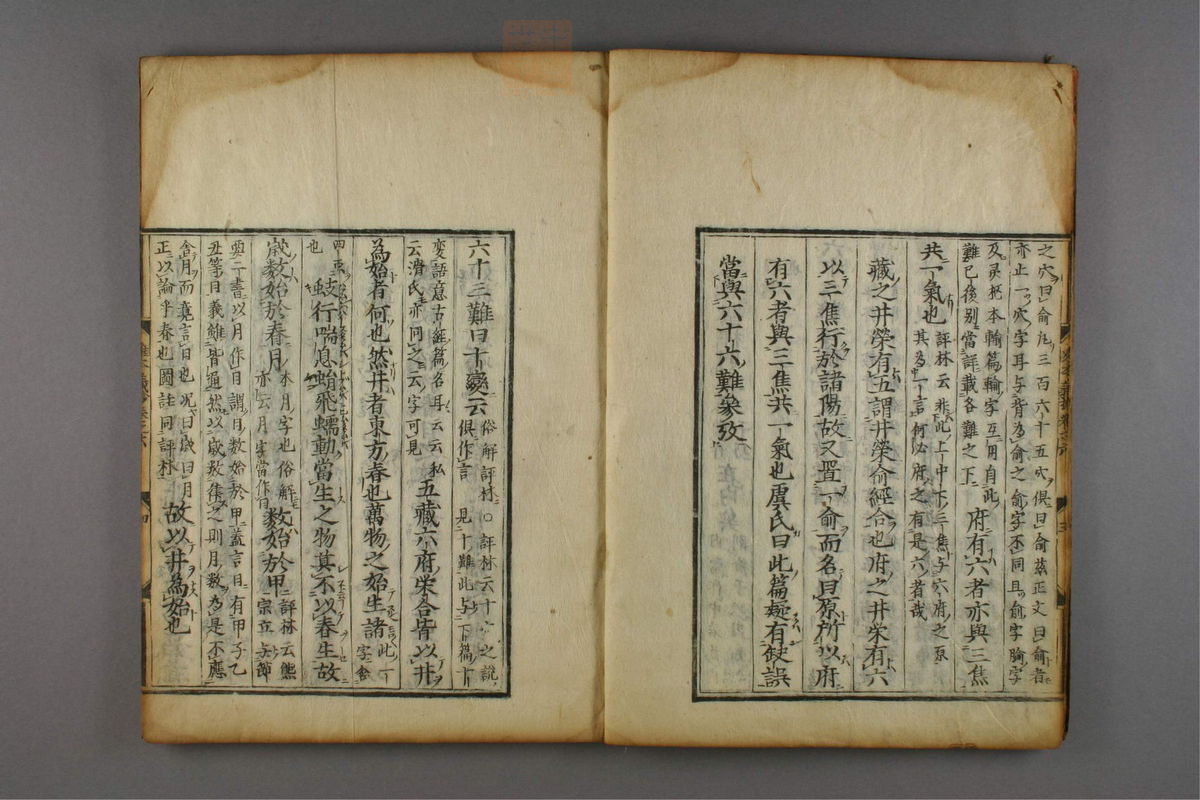 之穴曰俞凡三百六十五穴俱曰俞茲正文曰俞者
亦止一穴字耳与背為俞之俞字不同且俞字腧字
及灵枢本輸篇輸字互用自此
難已後別當詳載各難之下
府有六者亦與三焦
共一氣也
評林云非此上中下三焦与六府之原
其為一言何必府之有是六者哉
藏之井榮有五謂井榮俞經合也府之井栄有六
以三焦行於諸陽故又置一俞而名曰原所以府
有六者與三焦共一氣也虞氏曰此篇疑有缺誤
當與六十六難參攷
六十三難曰十變云
俗解評林
俱作言
○評林云十变之說
見十難此与下篇十
變語意古經篇名耳云云私
云滑氏亦同之云字可見
五藏六府栄合皆以井
為始者何也然井者東方春也萬物之始生諸
此下
字舍
四原
也
蚑行喘息蜎飛蠕動當生之物其不以春生故
歳数始於春月
本月字也俗解
亦云月字當作日
数始於甲
評林云熊
宗立与節
要二書以月作日謂日数始於甲蓋言日有甲子乙
丑等日義雖皆通然以歳数律之則月数為是不應
舍月而竟言日也况曰歳曰月
正以論乎春也圖註同評林
故以井為始也